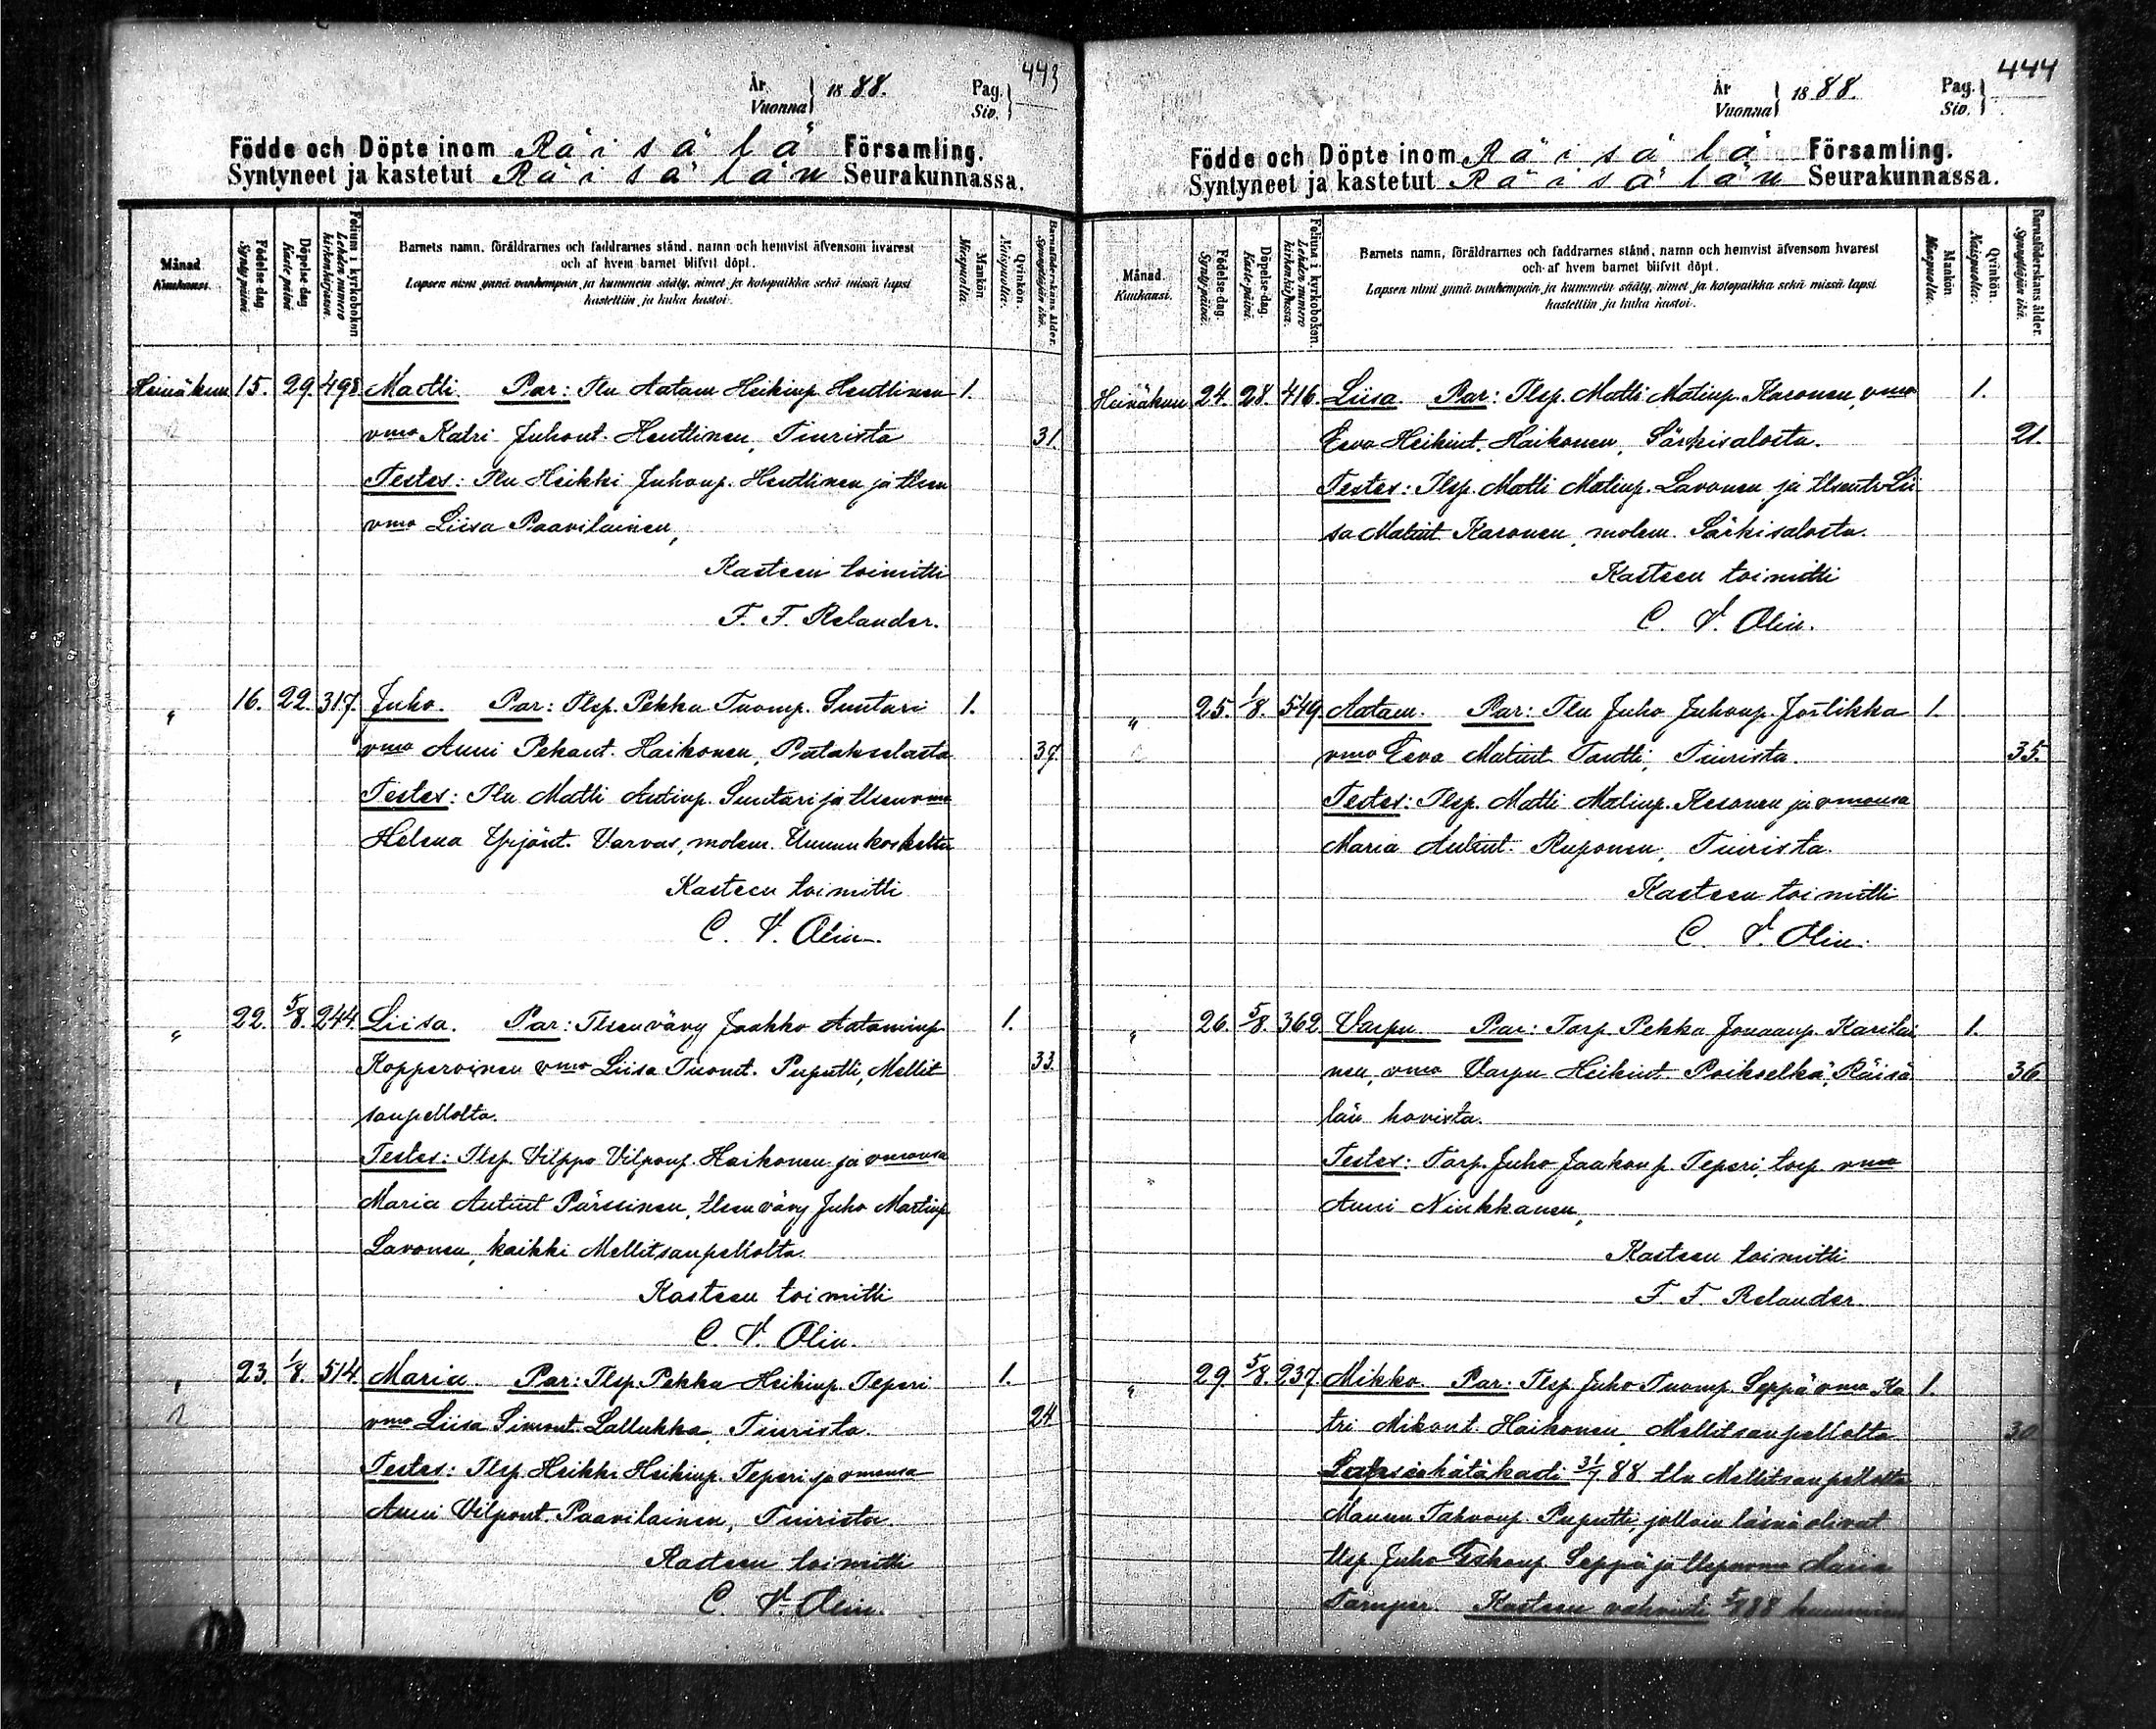 443
År 1888. Pag.
Vuonna Siv.
Födde och Döpte inom Räisälä Församling.
Syntyneet ja kastetut Räisälän Seurakunnassa.
Månad. Kuukausi.
Födelse-dag. Synty-päivä.
Döpelse-dag. Kaste-päivä
Folium i kyrkoboken Lehden numero kirkonkirjassa.
Barnets namn, föräldrarnes och faddrarnes stånd, namn och hemvist äfvensom hvarest
och af hvem barnet blifvit döpt.
Lapsen nimi ynnä vanhempain ja kummein sääty, nimet ja kotopaikka sekä missä lapsi
kastettiin ja kuka kastoi.
Mankön. Miespuolta.
Qvinkön. Naispuolta.
Barnaföderskans ålder. Synnyttäjän ikä.
Heinäkuu 15. 29. 498 Matti. Par: Tln Aatam Heikinp. Henttinen 1.
vmo Katri Juhont. Henttinen, Tiurista 31.
Testes: Tln Heikki Juhonp. Henttinen ja tlsen
vmo Liisa Paavilainen,
Kasteen toimitti
F. F. Relander.
" 16. 22. 317. Juho. Par: Tlsp. Pekka Tuomp. Suntari 1.
vmo Anni Pekant. Haikonen, 37.
Testes: Tln Matti Antinp. Suntari ja tlsenvmo
Helena Yrjönt. Varvas, molem. Unnunkoskelta
Kasteen toimitti
C. V. Olin.
" 22. 5/8. 244. Liisa. Par: Tlsenvävy Jaakko Aataminp 1.
Kopperoinen vmo Liisa Tuomt. Puputti, Mellit 33.
sanpellolta.
Testes: Tlsp. Vilppo Vilponp. Haikonen ja vmonsa
Maria Antint Pärssinen, tlsenvävy Juho Martinp
Lavonen, kaikki Mellitsanpellolta.
Kasteen toimitti
C. V. Olin.
" 23. 1/8. 514. Maria. Par: Tlsp. Pekka Heikinp. Teperi 1.
vmo Liisa Simont. Lallukka, Tiurista. 24
Testes: Tlsp. Heikki Heikinp. Teperi ja vmonsa
Anni Vilpont. Paavilainen, Tiurista.
Kasteen toimitti
C. V. Olin.
444
År 1888. Pag.
Vuonna Siv.
Födde och Döpte inom Räisälä Församling.
Syntyneet ja kastetut Räisälän Seurakunnassa.
Månad. Kuukausi.
Födelse-dag. Synty-päivä.
Döpelse-dag. Kaste-päivä.
Folium i kyrkoboken. Lehden numero kirkonkirjassa.
Barnets namn, föräldrarnes och faddrarnes stånd, namn och hemvist äfvensom hvarest
och af hvem barnet blifvit döpt.
Lapsen nimi ynnä vanhempain ja kummein sääty, nimet ja kotopaikka sekä missä lapsi
kastettiin ja kuka kastoi.
Mankön. Miespuolta.
Qvinkön. Naispuolta.
Barnaföderskans ålder. Synnyttäjän ikä.
Heinäkuu 24. 28. 416. Liisa. Par: Tlsp. Matti Matinp. Karonen, vmo 1.
Eeva Heikint. Haikonen, Särkisalosta. 21.
Testes: Tlsp. Matti Matinp. Lavonen ja Lii
sa Matint Karonen, molem. Särkisalosta.
Kasteen toimitti
C. V. Olin.
" 25. 1/8. 549. Aatam. Par: Tln Juho Juhonp. 1.
vmo Eeva Matint Tantti, Tiurista. 35.
Testes: Tlsp. Matti Matinp. Kesonen ja vmonsa
Maria Antint. Ruponen, Tiurista.
Kasteen toimitti
C. V. Olin.
" 26. 5/8. 362. Varpu. Par: Torp. Pekka Karilai 1.
nen, vmo Varpu Heikint. Poikselkä, Räisä 36
län hovista.
Testes: Torp. Juho Jaakonp. Teperi, torp. vmo
Anni Ninkkanen,
Kasteen toimitti
F. F. Relander.
" 29. 5/8. 237. Mikko. Par: Tlsp. Juho Tuomp. Seppä vmo Ka 1.
tri Mikont. Haikonen, Mellitsanpellolta 30
hätäkasti 31/7 88 tln Mellitsanpellolta
Mannu Tahvonp. Puputti, jolloin läsnä olivat
tlsp. Juho Eskonp. Seppä ja Maria
Tamper. Kasteen vahvisti 5/8 88